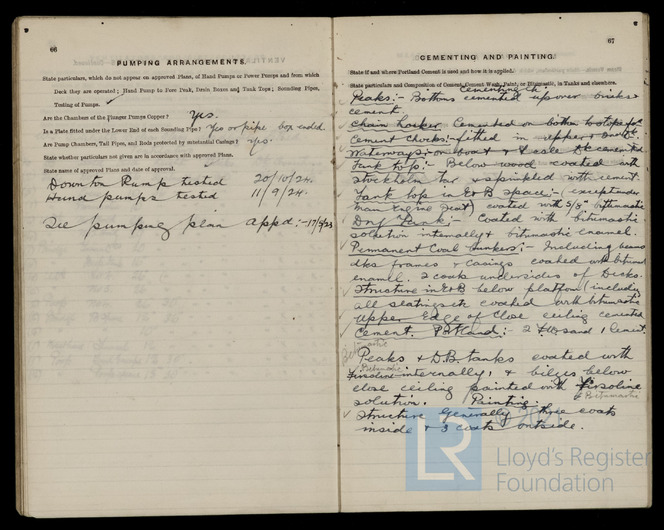 66
PUMPING ARRANGEMENTS.
State particulars, which do not appear on approved Plans, of Hand Pumps or Power Pumps and from which
Deck they are operated; Hand Pump to Fore Peak, Drain Boxes and Tank Tops; Sounding Pipes,
Testing of Pumps.
Are the Chambers of the Plunger Pumps Copper? Yes.
Is a Plate fitted under the Lower End of each Sounding Pipe? Yes or pipe box ended
Are Pump Chambers, Tail Pipes, and Rods protected by substantial Casings? Yes.
State whether particulars not given are in accordance with approved Plans.
State name of approved Plans and date of approval.
Downton Pump tested 20/10/24.
Hand pumps tested 11/9/24.
See pumping plan appd:-17/5/23
67
CEMENTING AND PAINTING.
State if and where Portland Cement is used and how it is applied.
State particulars and Composition of Cement, Cement Wash, Paint, or Bitumastic, in Tanks and elsewhere.
Cementing Etc:
Peaks:- Bottoms cemented up over bricks &
cement.
Chain locker Cemented on bottom to top of
Cement Chocks:- fitted in upper &
Waterways:- on front &
Tank top:- Below wood coated with
Stockholm tar & sprinkled with cement.
Tank top in E & B space:- (except under
main Engine seat) coated with 5/8" bitumastic
Dry Tank:- Coated with bitumastic
solution internally & bitumastic enamel.
Permanent Coal bunkers:- Including beams
dks frames & casings coated with bitumas
enamel. 2 coats undersides of Decks.
Structure in E & B below platform (including
all seatings etc coated with bitumastic
Upper Edge of Close ceiling cemented
Cement. Portland:- 2 sand 1 Cement.
Peaks & D.B. tanks coated with
Bitumastic
internally, & bilges below
close ceiling painted with Virsoline
Bitumastic
solution. Painting:
Structure Generally three coats
inside & 3 coats outside.
Lloyd's Register
Foundation
LR